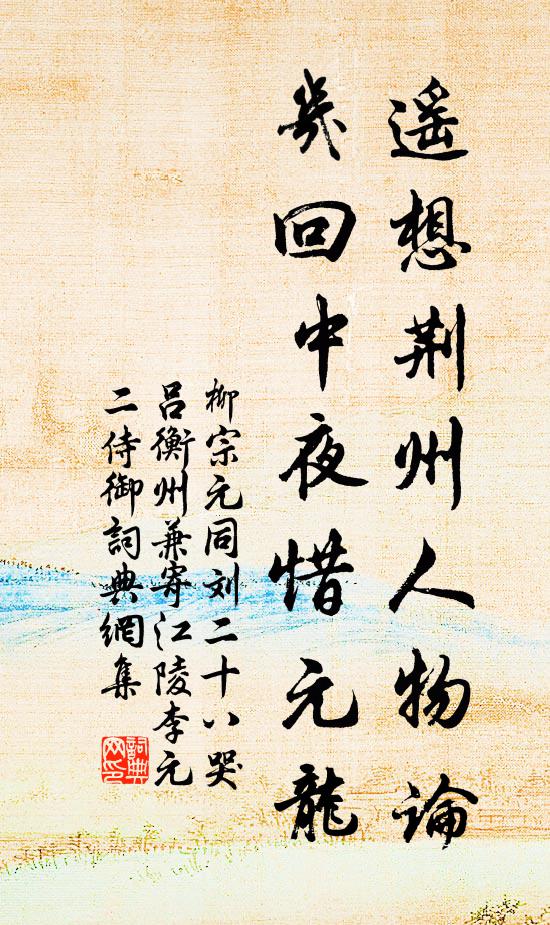 遥想荆州人物论
幾回中夜惜元龍
柳宗元同刘二十八哭
吕衡州兼寄江陵李元
二侍御詞典網集
詞典
网印